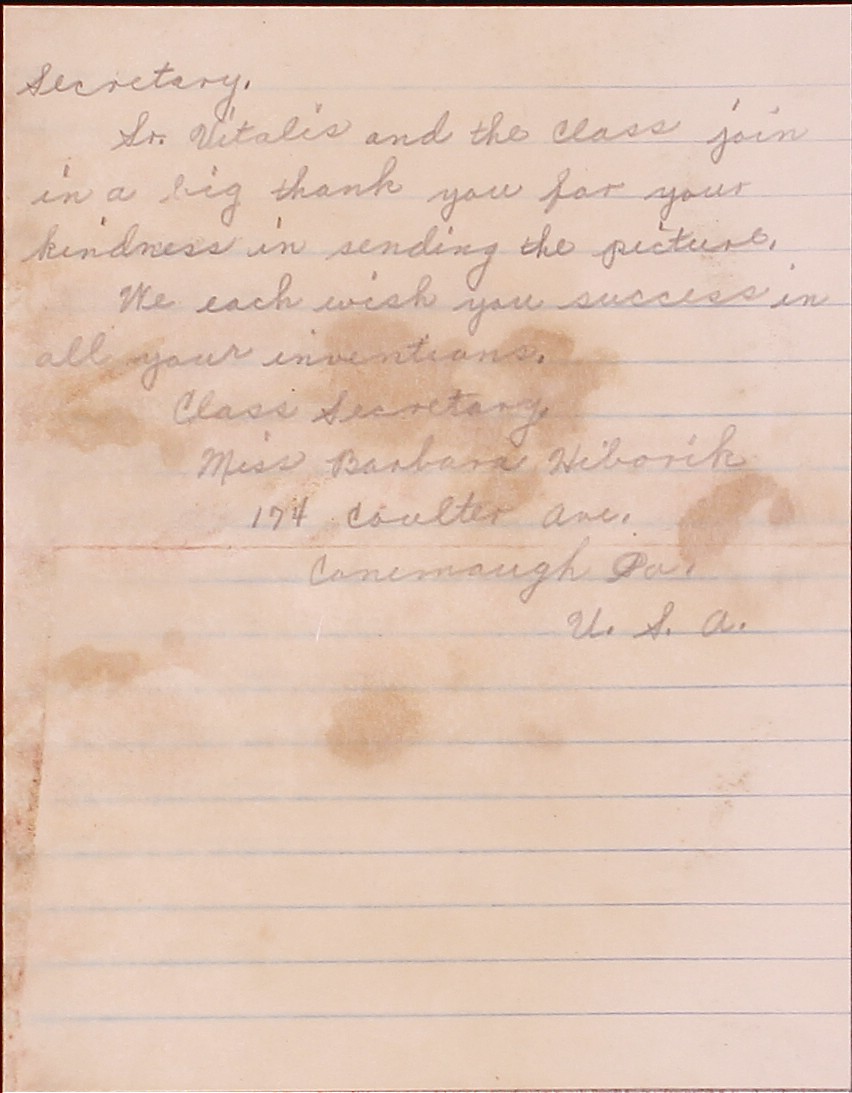 Secretary.
Sr. Vitalis and the class join
in a big thank you for your
kindness in sending the picture.
We each wish you success in
all your inventions.
Class Secretary.
Miss Barbara Hiborik
174 Coulter Ave.
Conemaugh Pa.
U. S. A.